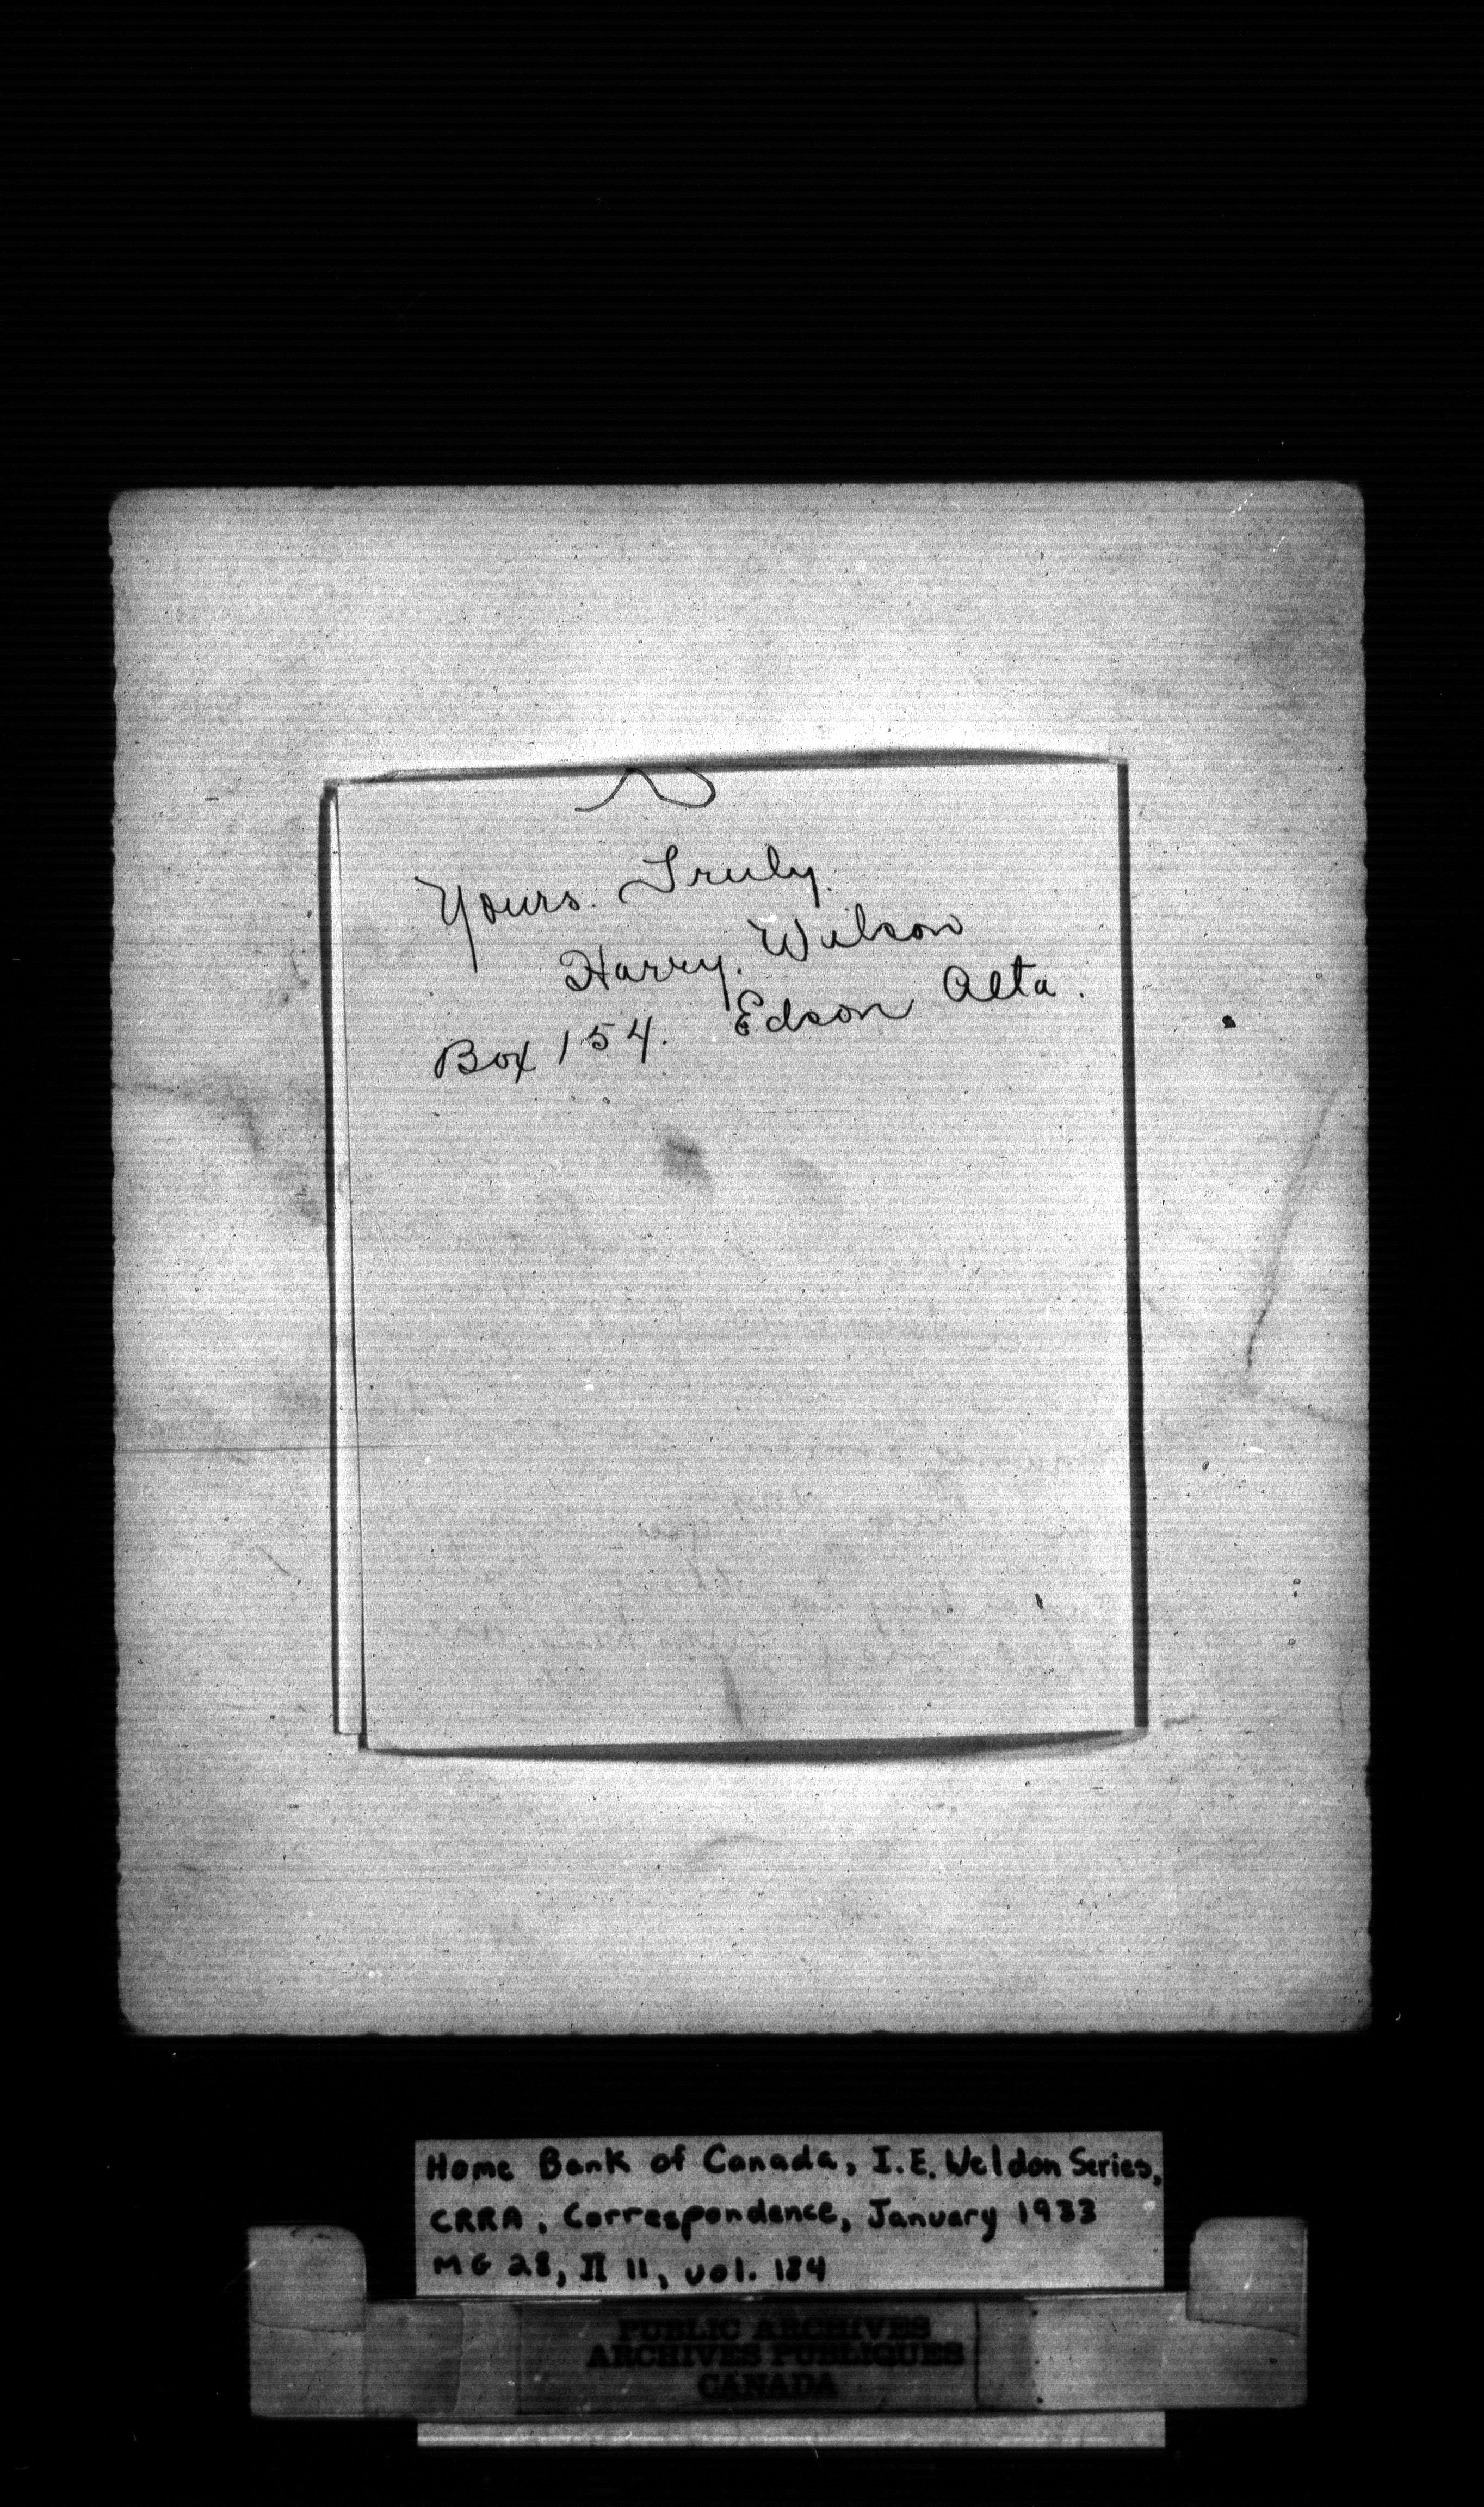 Yours. Truly.
Harry. Wilson
Box 154. Edson Alta.
Home Bank of Canada, I.E. Weldon Series,
CRRA, Correspondence, January 1933
MG 28, II 11, vol. 184
PUBLIC ARCHIVES
ARCHIVES PUBLIQUES
CANADA